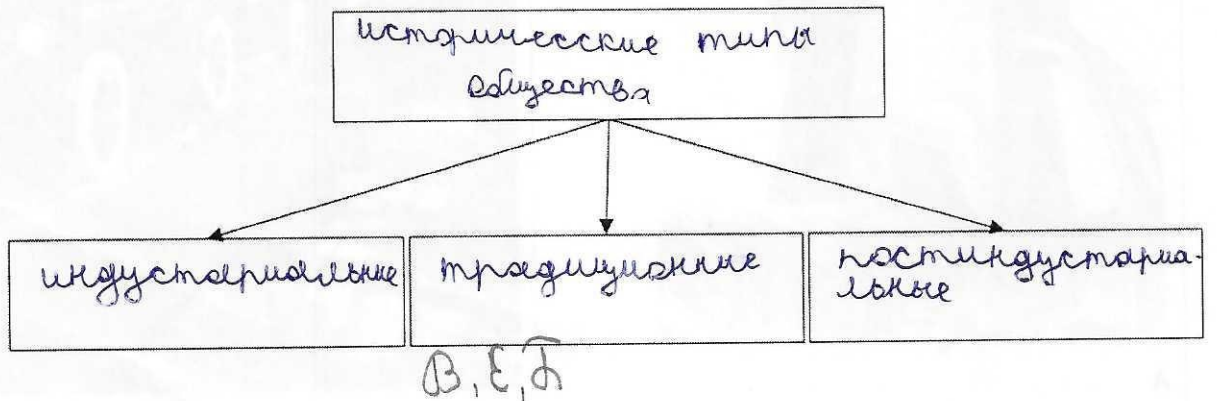 исторические типы
общества
индустариальные
традиционные
постиндустариа-
льные
В, Е, Б